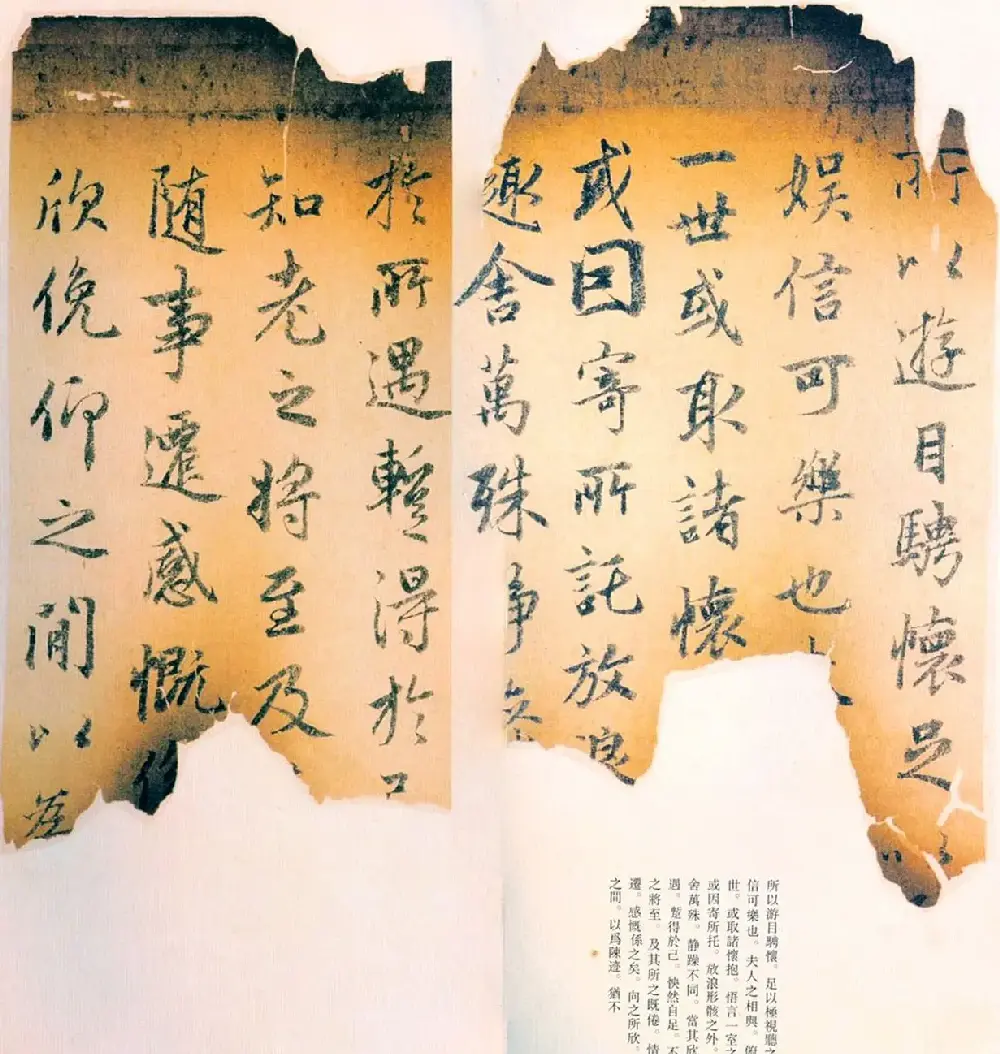 所以遊目騁懷足以
娛信可樂也
一世或取諸懷
或因寄所託放浪
趣舍萬殊静
於所遇暫得於己
知老之將至及
随事遷感慨係
欣俛仰之間以為
所以游目騁懷。足以極視聽之
信可樂也。夫人之相與。俯
世。或取諸懷抱。悟言一室之
或因寄所托。放浪形骸之外。
舍萬殊。静躁不同。當其欣
遇。蹔得於己。怏然自足。不
之將至。及其所之既倦。情
遷。感慨係之矣。向之所欣。
之間。以爲陳迹。猶不